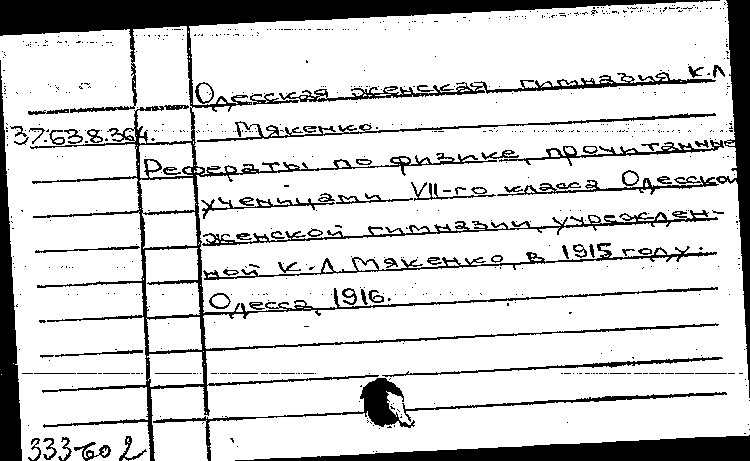 Одесская женская гимназия К.Л.
37.63.8.364. Мякенко.
Рефераты по физике, прочитанные
ученицами VII-го класса Одесской
женской гимназии, учрежден-
ной К.Л. Мякенко, в 1915 году.
Одесса, 1916.
333-60 2